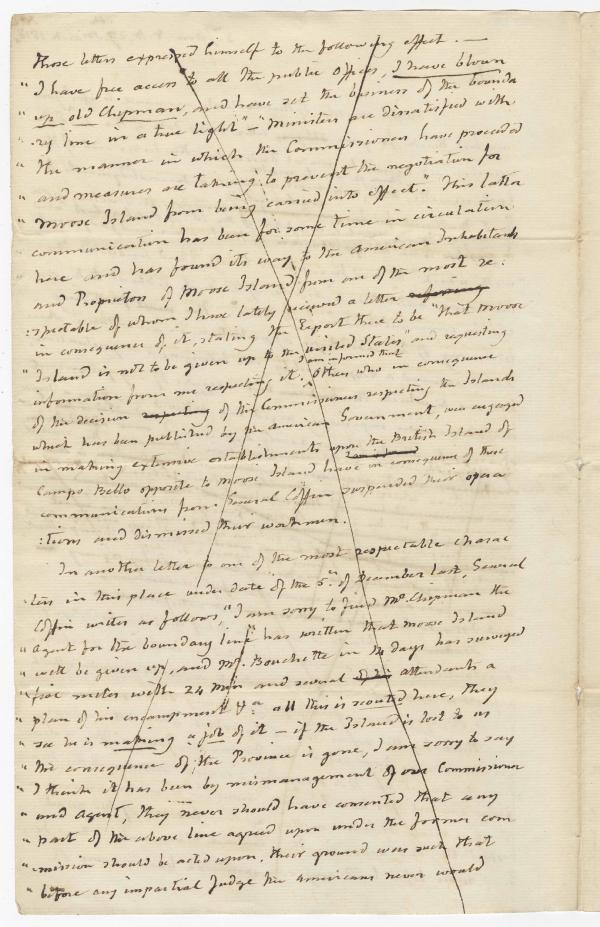 those letters expressed himself to the following effect. —
" I have free access to all the public offices, I have blown
" up old Chipman, and have set the business of the bounda
" :ry line in a true light" — "Ministers are dissatisfied with
" the manner in which the Commissioners have proceeded
" and measures are taking to prevent the negotiation for
" Moose Island from being carried into effect." This latter
communication has been for some time in circulation
here and has found its way to the American Inhabitants
and Proprietors of Moose Island from one of the most re:
:spectable of whom I have lately received a letter
in consequence of it, stating the Report there to be "that Moose
" Island is not to be given up to the united States," and requesting
information from me respecting it. I am informed that Others who in consequence
of the decision respecting of the Commissioners respecting the Islands
which has been published by the American Government, were engaged
in making extensive establishments upon the British Island of
Campo Bello opposite to Moose Island have in consequence of these
communications from General Coffin suspended their opera
:tions and dismissed their workmen.
In another letter to one of the most respectable charac
:ters in this place under date of the 5th. of December last, General
Coffin writes as follows, "I am sorry to find Mr. Chipman the
" Agent for the boundary line" has written that Moose Island
" will be given up, and Mr. Bouchette in 14 days has surveyed
" five miles with 24 men and several of his attendants a
" plan of his encampment &a all this is scouted here, they
" see he is making a job of it — if the Island is lost to us
" the consequence of the Province is gone, I am sorry to say
" I think it has been by mismanagement of our Commissioner
" and Agent, they never should have consented that any
" part of the above line agreed upon under the former com
" :mission should be acted upon, their ground was such that
" before any impartial Judge the Americans never would